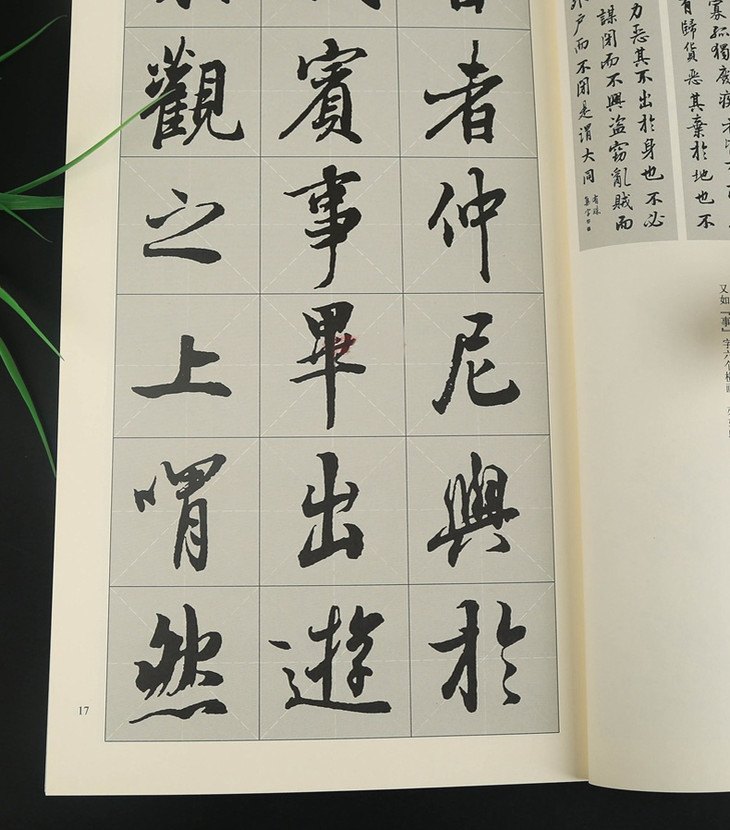 寡孤獨廢疾者
有歸貨惡其棄於地也不
力惡其不出於身也不必
謀閉而不興盜竊亂賊而
外戶而不閉是謂大同
又如「事」字
者仲尼與於
賓事畢出遊
觀之上喟然
17